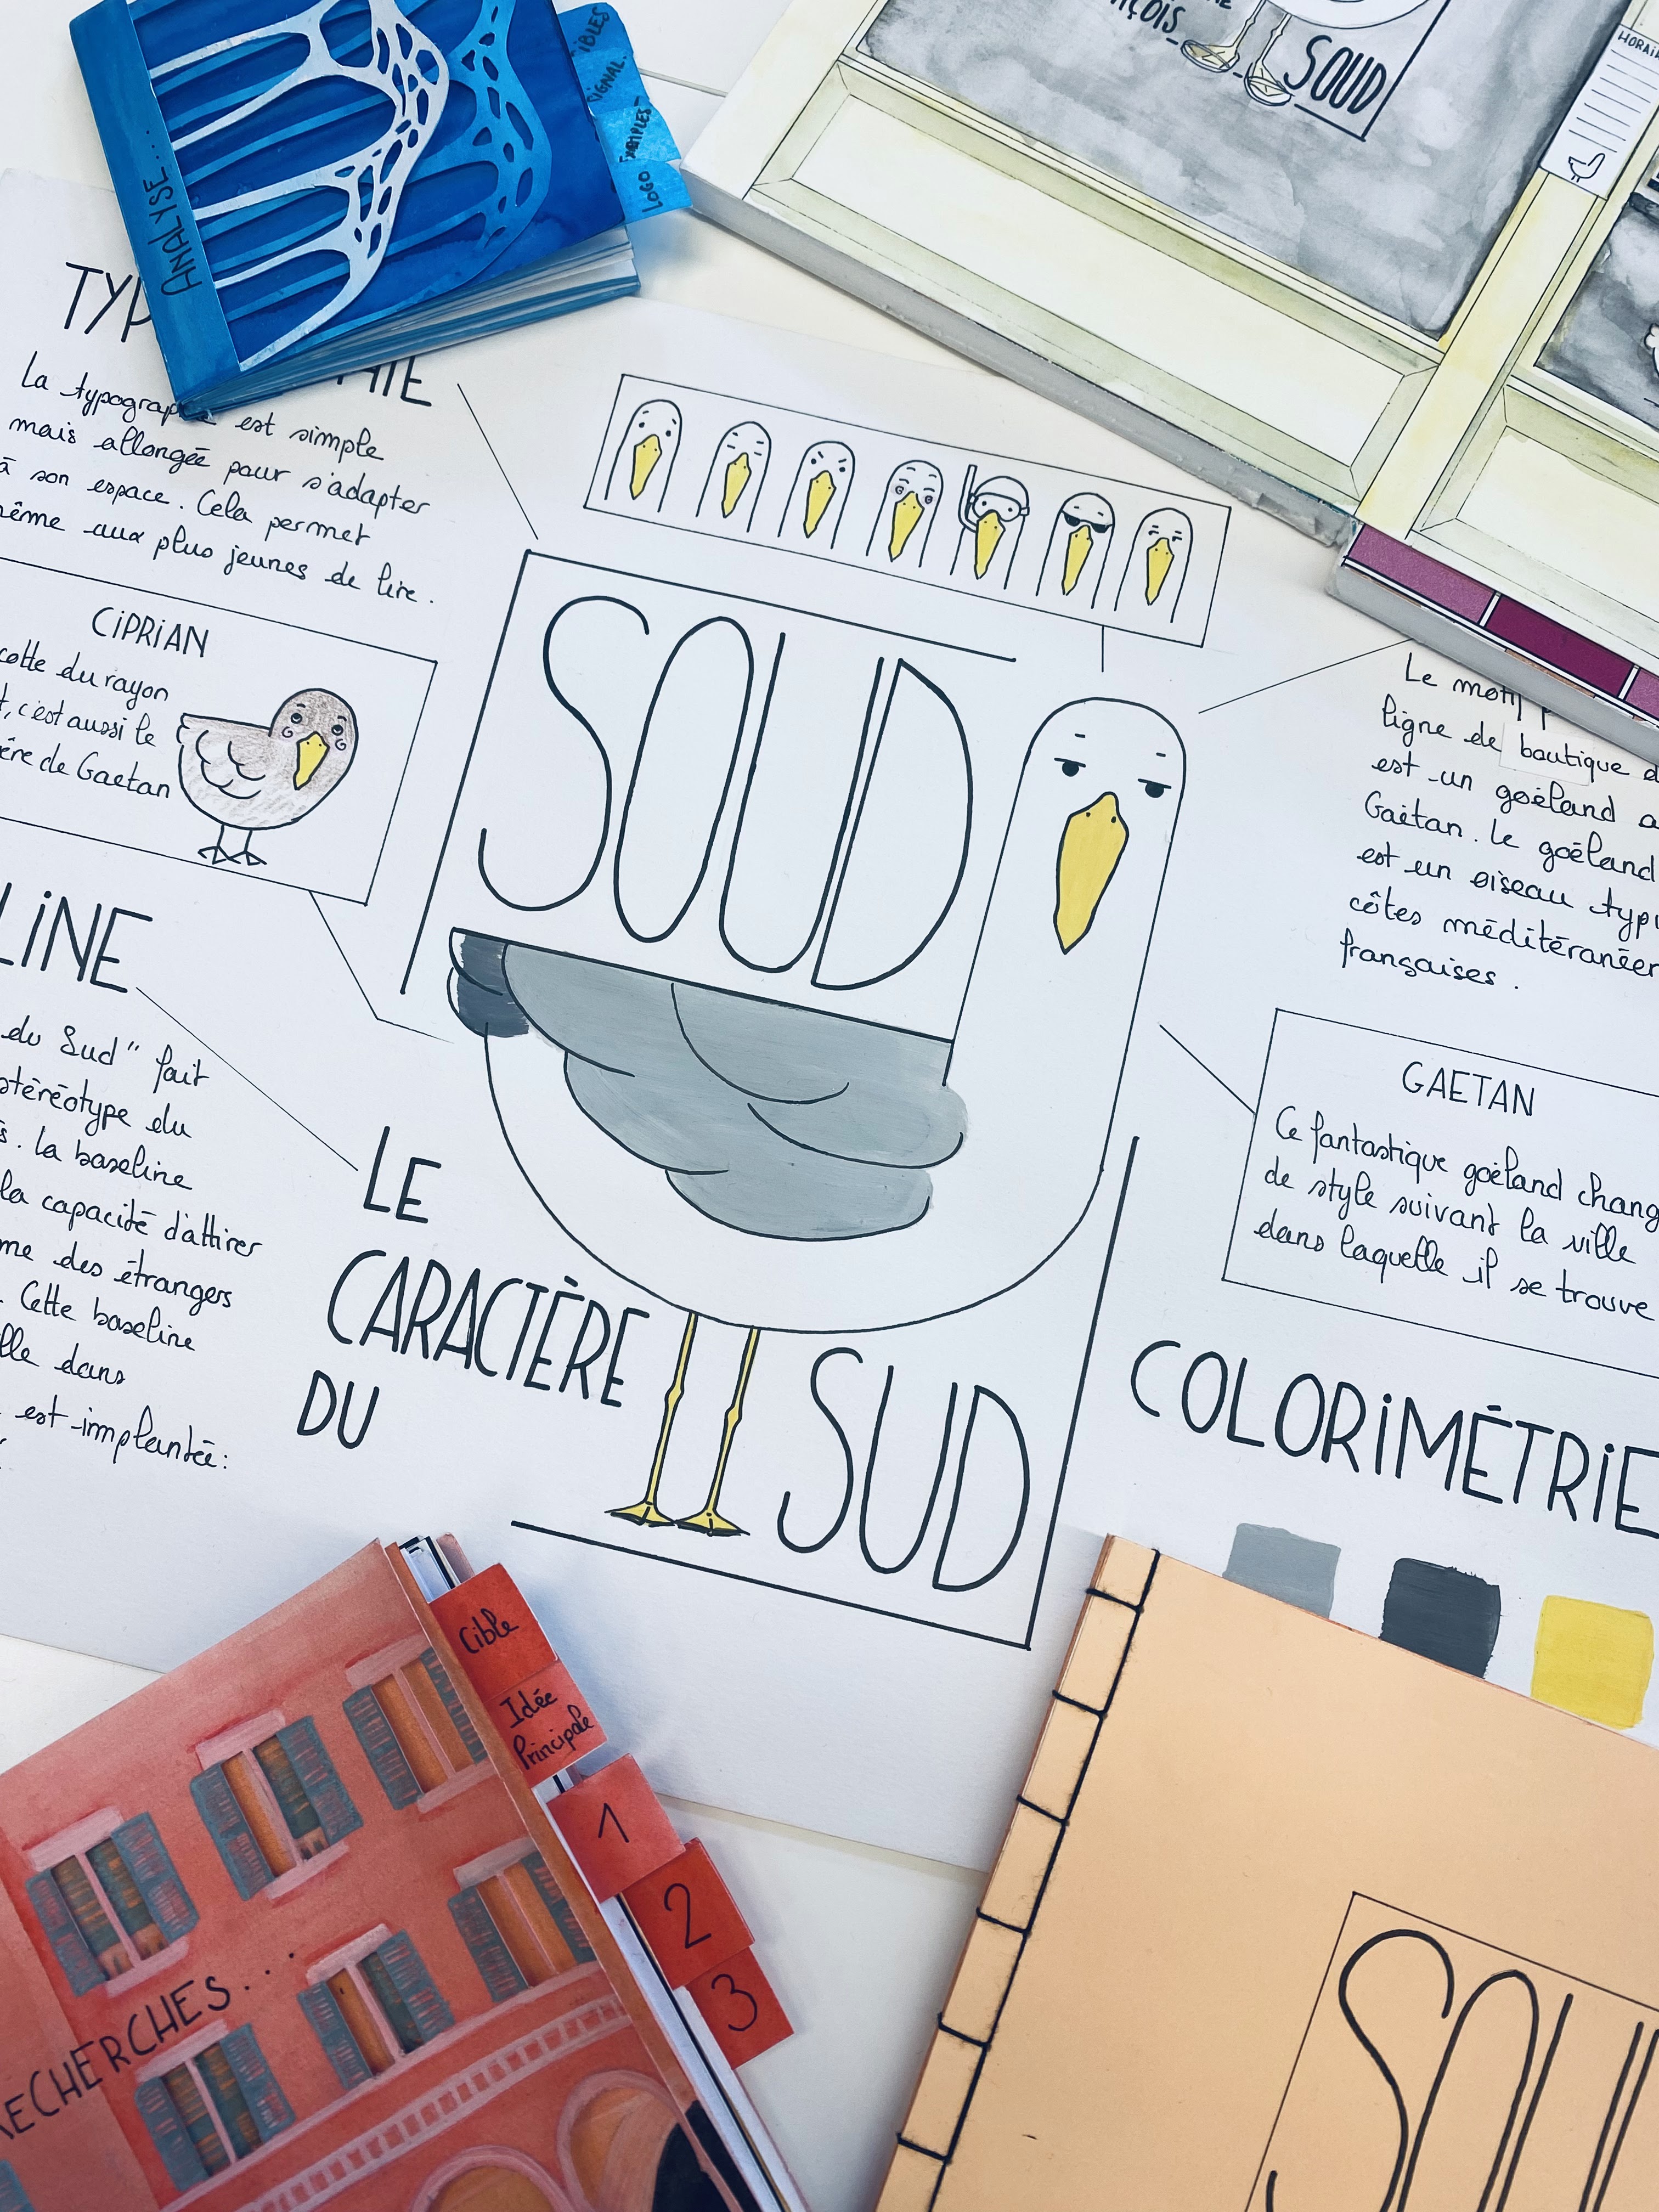 ANALYSE...
SIGNAL.
EXEMPLES
LOGO
SOUD
TYP
La typographie est simple
mais allongée pour s'adapter
à son espace. Cela permet
même aux plus jeunes de lire.
CiPRiAN
du rayon
c'est aussi le
de Gaetan
LiNE
du Sud" fait
stéréotype du
la baseline
la capacité d'attirer
des étrangers
Cette baseline
dans
est implantée:
SOUD
LE
CARACTÈRE
DU
SUD
Le motif
ligne de boutique
est un goéland
Gaëtan. Le goéland
est un oiseau
côtes méditéranéen
françaises.
GAETAN
Ce fantastique goéland chang
de style suivant la ville
dans laquelle il se trouve
COLORiMÉTRiE
Cible
Idée
Principale
1
2
3
RECHERCHES...
SOU